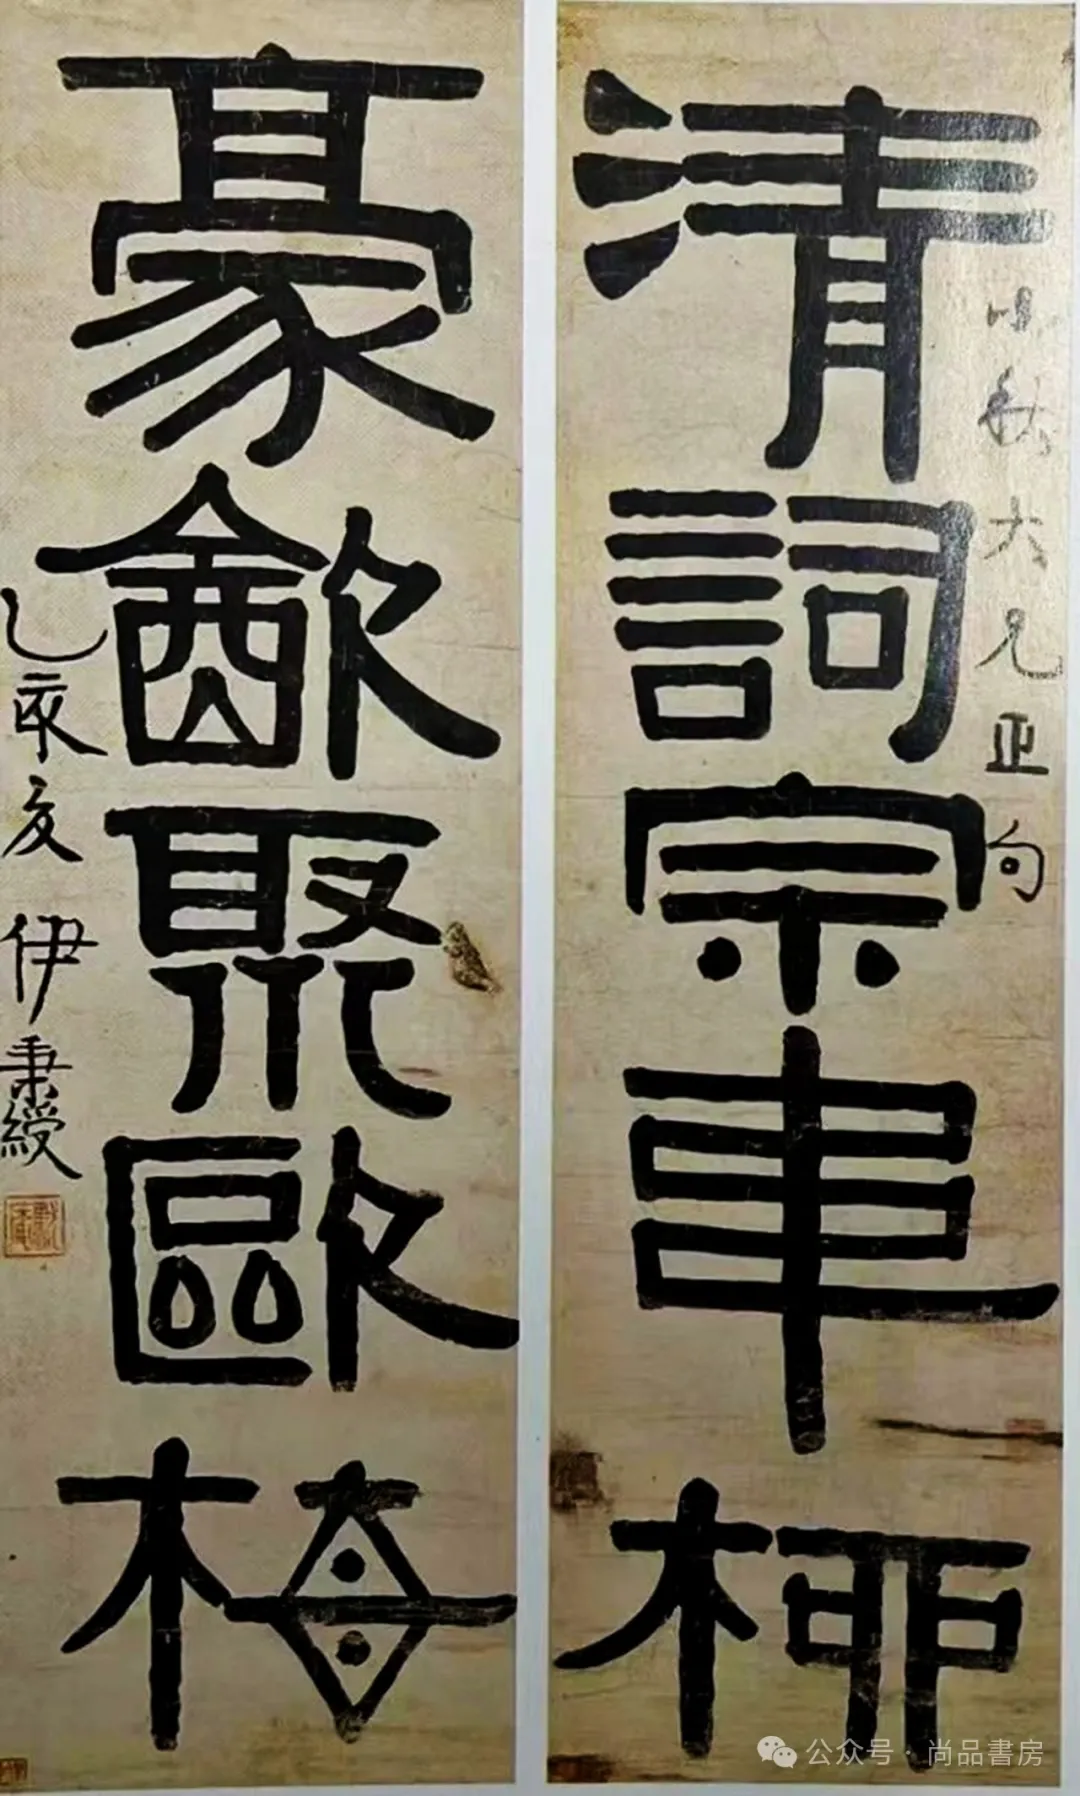 清詞宗韋柳
小秋大兄正句
豪㱃聚歐梅
乙亥夏 伊秉綬
公众号 · 尚品書房